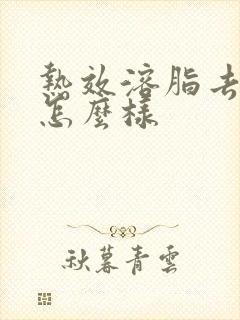 熱效溶脂去
怎麼樣
秋暮青雲